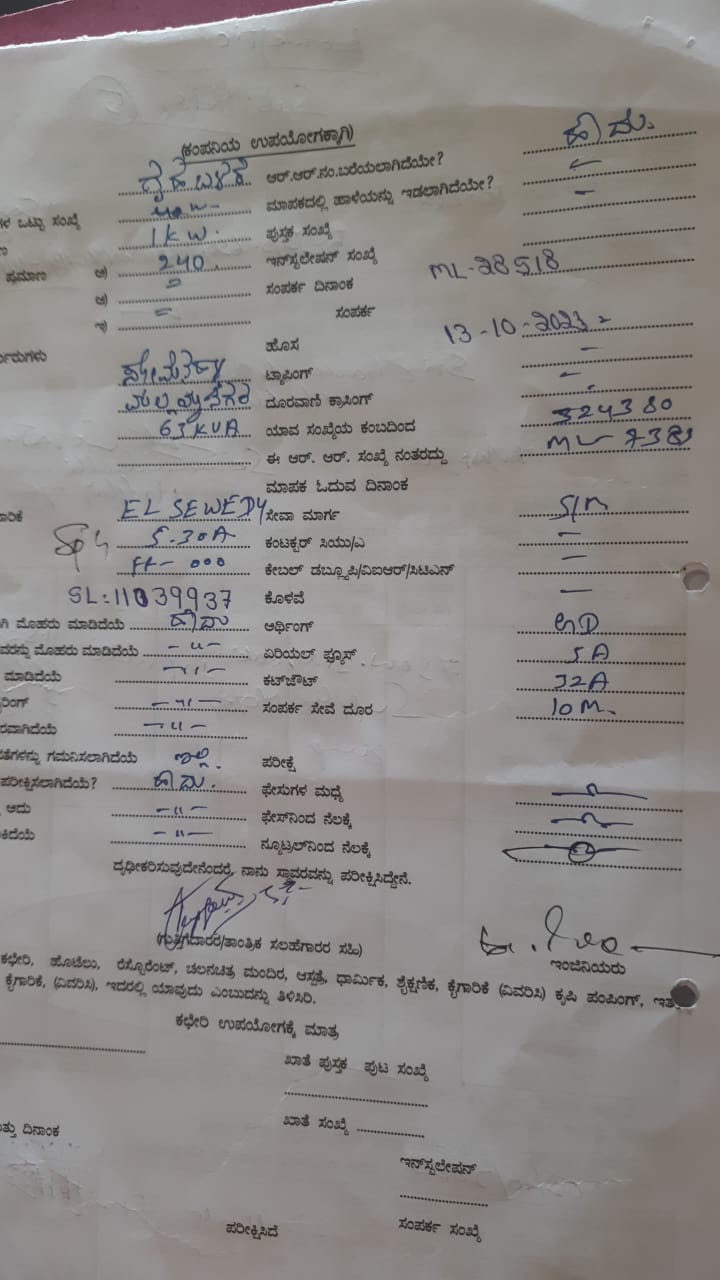 (ಕಂಪನಿಯ ಉಪಯೋಗಕ್ಕಾಗಿ)
ಗೃಹ ಬಳಕೆ ಆರ್.ಆರ್.ನಂ.ಬರೆಯಲಾಗಿದೆಯೇ? ಹೌದು.
ಗಳ ಒಟ್ಟು ಸಂಖ್ಯೆ ಮಾಪಕದಲ್ಲಿ ಹಾಳೆಯನ್ನು ಇಡಲಾಗಿದೆಯೇ?
1 KW. ಪುಸ್ತಕ ಸಂಖ್ಯೆ
ಪ್ರಮಾಣ ಅ) 240 ಇನ್‌ಸ್ಟಲೇಷನ್ ಸಂಖ್ಯೆ ML-28518
ಆ) ಸಂಪರ್ಕ ದಿನಾಂಕ
ಇ) ಸಂಪರ್ಕ 13-10-2023
ಹೊಸ
ಟ್ಯಾಪಿಂಗ್
ದೂರವಾಣಿ ಕ್ರಾಸಿಂಗ್
63 KVA ಯಾವ ಸಂಖ್ಯೆಯ ಕಂಬದಿಂದ 324380
ಈ ಆರ್. ಆರ್. ಸಂಖ್ಯೆ ನಂತರದ್ದು ML 7383
ಮಾಪಕ ಓದುವ ದಿನಾಂಕ
EL SEWEDY ಸೇವಾ ಮಾರ್ಗ S/M
5-30A ಕಂಟಕ್ಟರ್ ಸಿಯು/ಎ
000 ಕೇಬಲ್ ಡಬ್ಲ್ಯೂಪಿ/ವಿಐಆರ್/ಸಿಟಿಎನ್
SL:11039937 ಕೊಳವೆ
ಗಿ ಮೊಹರು ಮಾಡಿದೆಯೆ ಹೌದು ಆರ್ಥಿಂಗ್
ವರನ್ನು ಮೊಹರು ಮಾಡಿದೆಯೆ -〃- ಏರಿಯಲ್ ಫ್ಯೂಸ್ 5A
ಮಾಡಿದೆಯೆ -〃- ಕಟ್‌ಔಟ್ 32A
ರಿಂಗ್ -〃- ಸಂಪರ್ಕ ಸೇವೆ ದೂರ 10M.
ರವಾಗಿದೆಯೆ -〃-
ತೆಗಳನ್ನು ಗಮನಿಸಲಾಗಿದೆಯೆ ಇಲ್ಲ. ಪರೀಕ್ಷೆ
ಪರೀಕ್ಷಿಸಲಾಗಿದೆಯೆ? ಹೌದು. ಫೇಸುಗಳ ಮಧ್ಯೆ
ಅದು -〃- ಫೇಸ್‌ನಿಂದ ನೆಲಕ್ಕೆ
ಕಿದೆಯೆ -〃- ನ್ಯೂಟ್ರಲ್‌ನಿಂದ ನೆಲಕ್ಕೆ
ದೃಢೀಕರಿಸುವುದೇನೆಂದರೆ, ನಾನು ಸ್ಥಾವರವನ್ನು ಪರೀಕ್ಷಿಸಿದ್ದೇನೆ.
(ಗುತ್ತಿಗೆದಾರರ/ತಾಂತ್ರಿಕ ಸಲಹೆಗಾರರ ಸಹಿ) ಇಂಜಿನಿಯರು
ಕಛೇರಿ, ಹೊಟೆಲು, ರೆಸ್ಟೋರೆಂಟ್, ಚಲನಚಿತ್ರ ಮಂದಿರ, ಆಸ್ಪತ್ರೆ, ಧಾರ್ಮಿಕ, ಶೈಕ್ಷಣಿಕ, ಕೈಗಾರಿಕೆ (ವಿವರಿಸಿ) ಕೃಷಿ ಪಂಪಿಂಗ್, ಇತ
ಕೈಗಾರಿಕೆ, (ವಿವರಿಸಿ), ಇದರಲ್ಲಿ ಯಾವುದು ಎಂಬುದನ್ನು ತಿಳಿಸಿರಿ.
ಕಛೇರಿ ಉಪಯೋಗಕ್ಕೆ ಮಾತ್ರ
ಖಾತೆ ಪುಸ್ತಕ ಪುಟ ಸಂಖ್ಯೆ
ಖಾತೆ ಸಂಖ್ಯೆ
ತ್ತು ದಿನಾಂಕ
ಇನ್‌ಸ್ಟಲೇಷನ್
ಪರೀಕ್ಷಿಸಿದೆ ಸಂಪರ್ಕ ಸಂಖ್ಯೆ